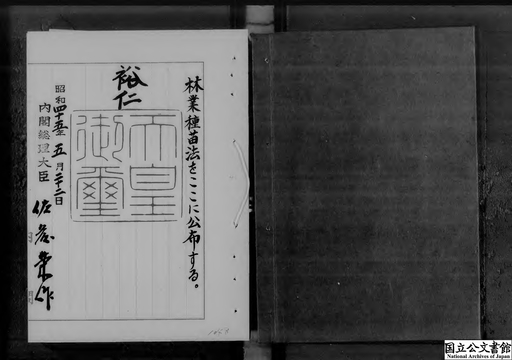 林業種苗法をここに公布する。
裕仁
天皇
御璽
昭和四十五年五月二十二日
内閣総理大臣 佐藤榮作
国立公文書館
National Archives of Japan